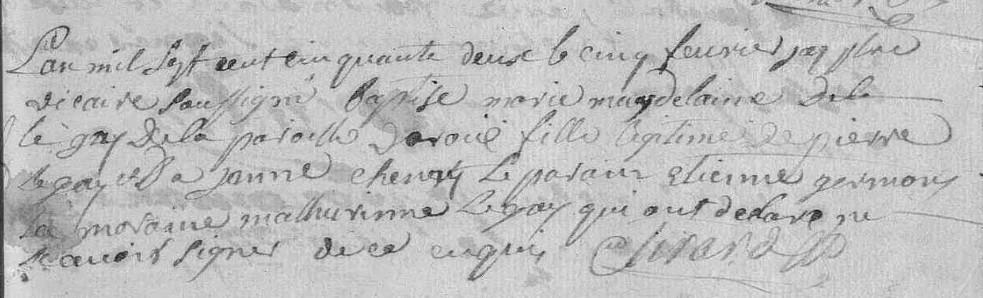 L'an mil sept cent cinquante deux le cinq fevrier j'ay ptre
vicaire soussigné baptise marie magdelaine
le gay de la paroisse fille legitime de pierre
le gay et Da janne chenay Le parain etienne germons
la moraine mathurinne Legay qui ont declare ne
scavoir signer de ce enquis Girard